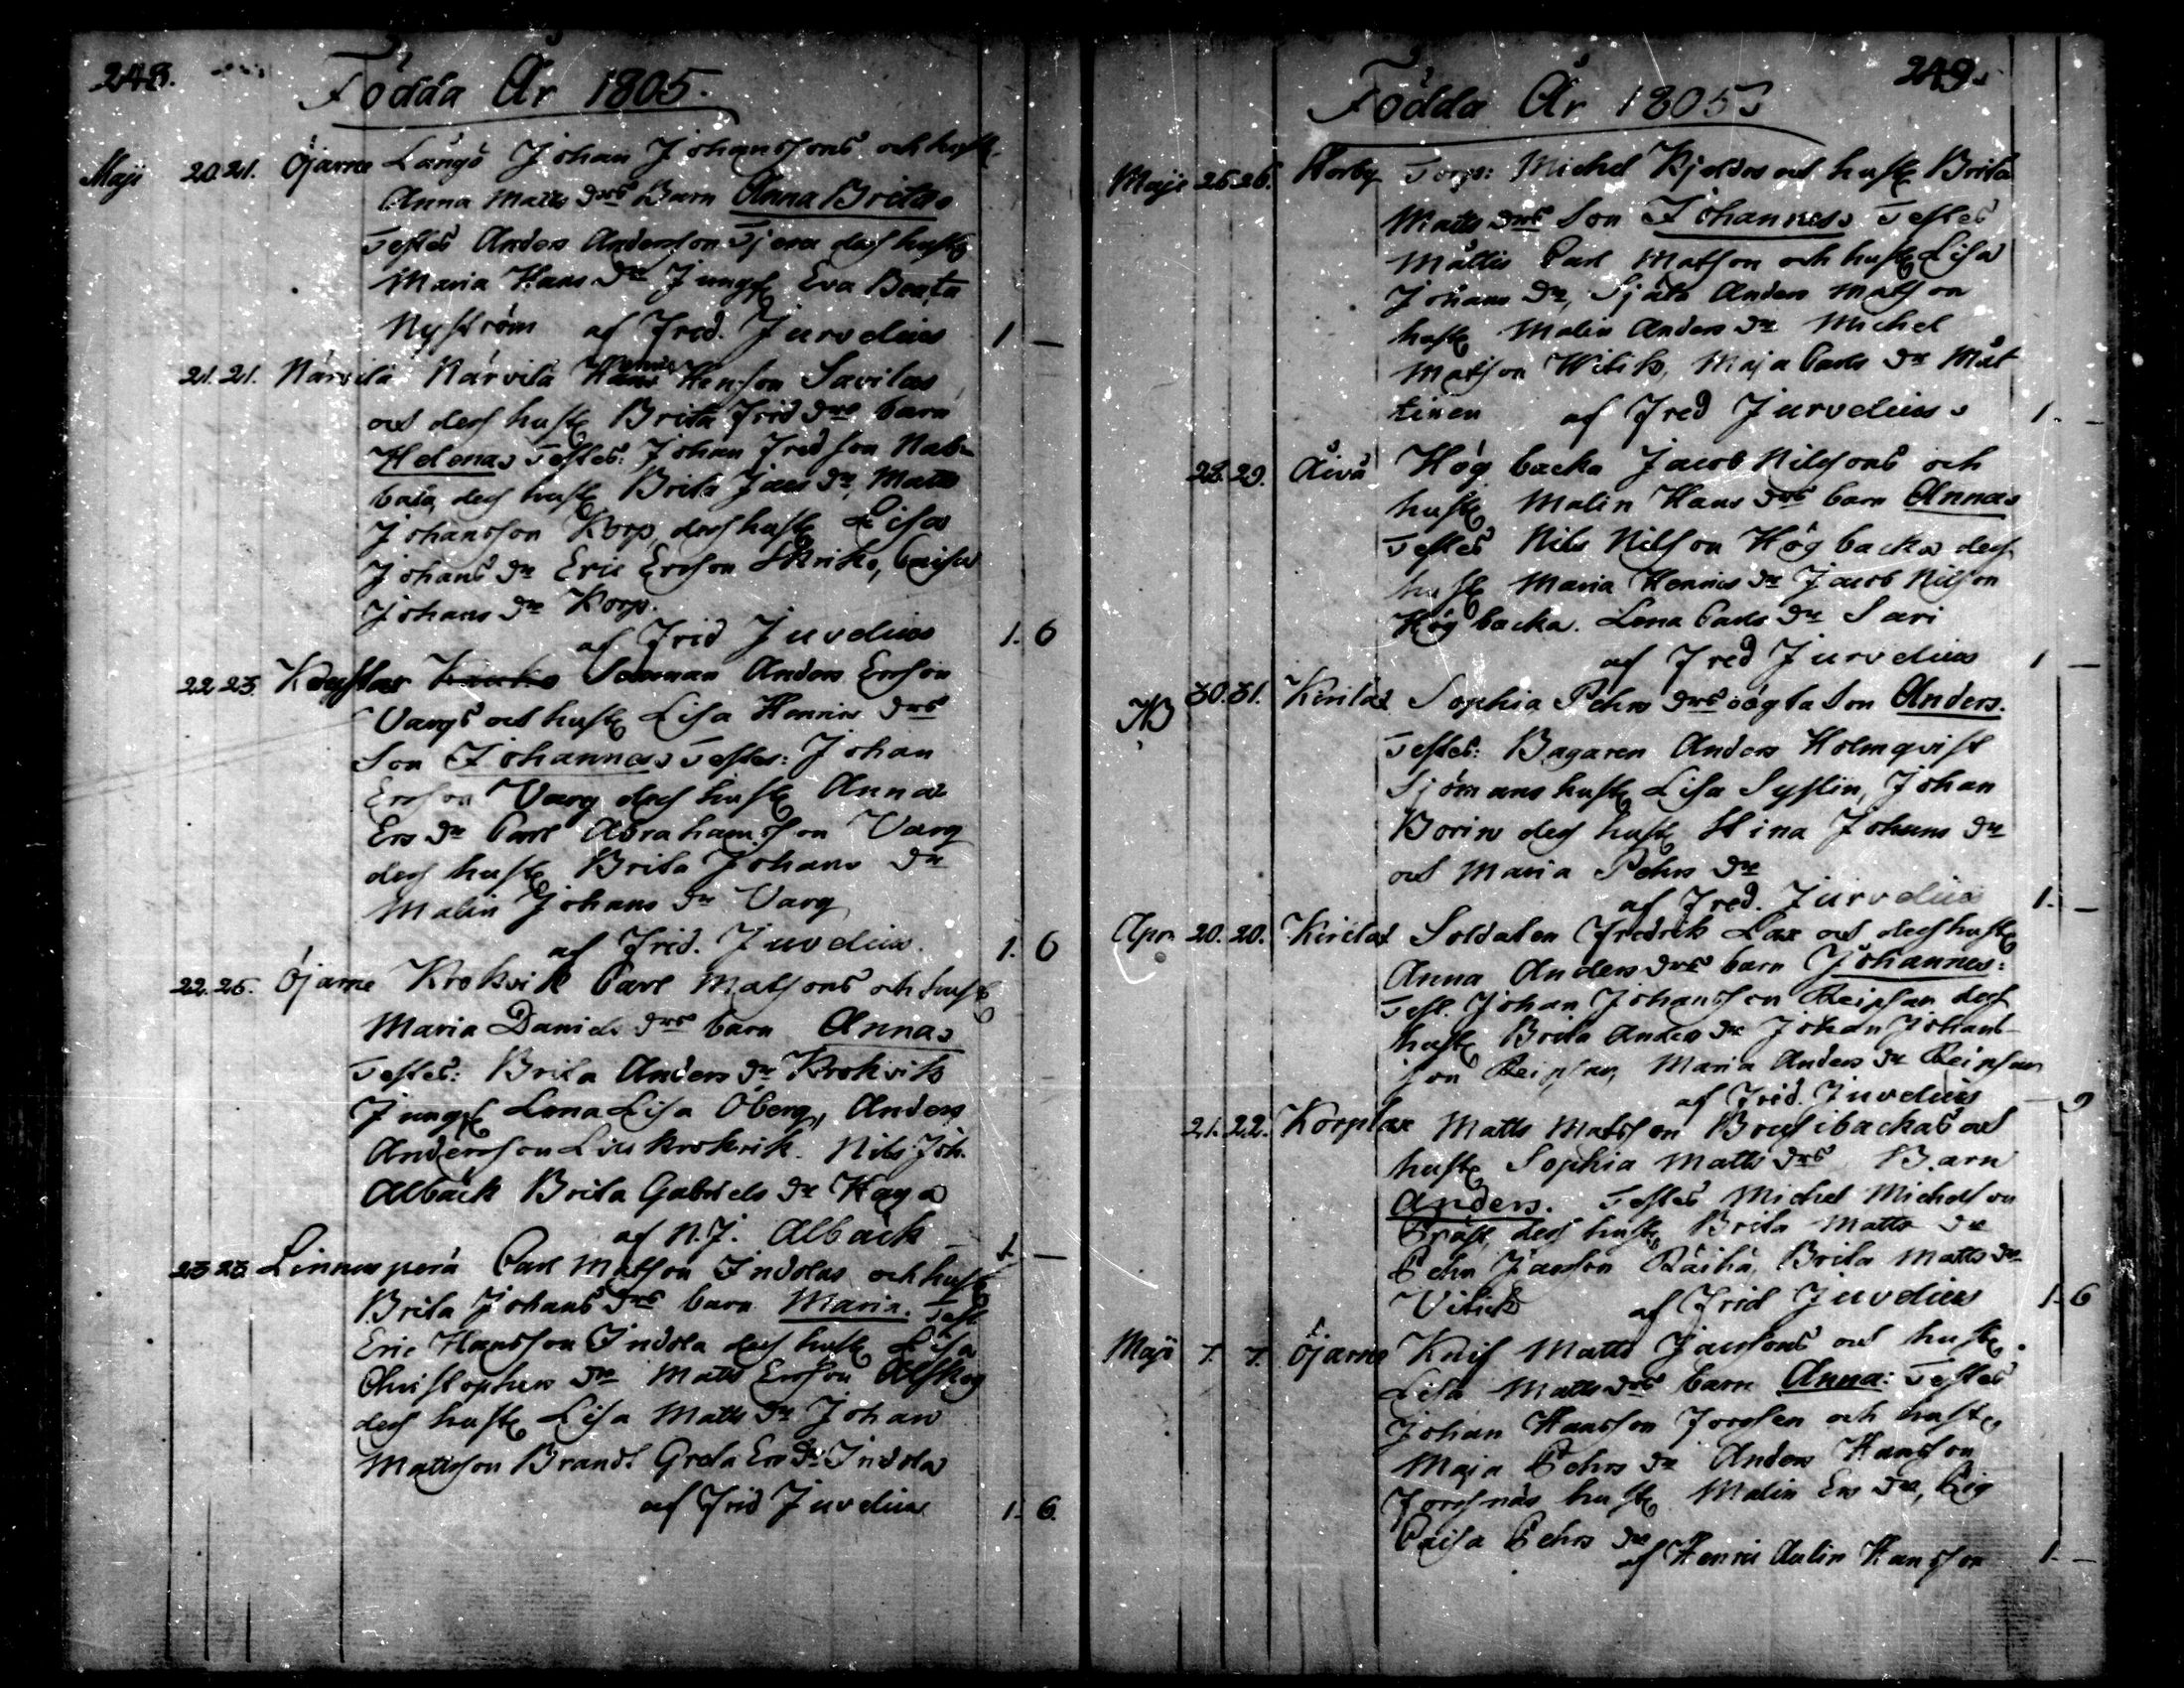 248.
Födda År 1805.
Maji 20. 21. Öjarne Långö Johan Johanssons och hust.
Anna Matts drs Barn Anna Brita.
Testes Anders Andersson Tjera dess hust.
Maria Hans dr Jungf. Eva Beata
Nyström af Fred. Juvelius 1 —
21. 21. Närvilä Närvilä Henric Henson Savilas
och dess hust. Brita Frid drs barn
Helena. Testes: Johan Fredson Nab-
bala, dess hust. Brita Jacs dr, Matts
Johansson Korp, dess hust. Lisa
Johans dr Eric Ersson Skrik, Caisa
Johans dr Korp.
af Frid Juvelius 1. 6
22. 23. Anders Ersson
Vargs och hust. Lisa Henrics drs
Son Johannes. Testes: Johan
Ersson Varg dess hust. Anna
Ers dr Carl Abrahamsson Varg
dess hust. Brita Johans dr
Malin Johans dr Varg
af Frid. Juvelius. 1. 6
22. 25. Öjarne Krokvik Carl Matsons och hust.
Maria Daniels drs barn Anna.
Testes: Brita Anders dr Krokvik
Jungf. Lena Lisa Öberg, Anders
Andersson Krokvik. Nils Joh.
Albäck Brita Gabriels dr Haga
af N. J. Albäck 1. —
23. 23. Linnusperä Carl Matson Indolas och hust.
Brita Johans drs barn Maria. Test.
Eric Hansson Indola dess hust. Lisa
Christophers dr Matts Ersson Alskog
dess hust. Lisa Matts dr Johan
Mattsson Brandt Greta Ers dr Indola
af Frid Juvelius 1. 6.
249.
Födda År 1805
Maji 26. 26. Torp: Michel och hust. Brita
Matts drs Son Johannes. Testes
Måttis Carl Matson och hust. Lisa
Johans dr, Anders Matson
hust. Malin Anders dr Michel
Matson Witick, Maja Carls dr Mat
tinen af Fred Juvelius 1. —
28. 29. Åivå Högbacka Jacob Nilssons och
hust. Malin Hans drs barn Anna.
Testes Nils Nilson Högbacka dess
hust. Maria Henrics dr Jacob Nilson
Högbacka. Lena Carls dr Sari
af Fred Juvelius 1 —
NB 30. 31. Kirilax Sophia Pehrs drs oägta Son Anders.
Testes: Bagaren Anders Holmqvist
Sjömans hust. Lisa Systin, Johan
Borin dess hust. Stina Johans dr
och Maria Pehrs dr
af Fred. Juvelius 1. —
Apr. 20. 20. Kirilax Soldaten Fredrik Lax och dess hust.
Anna Anders drs barn Johannes:
Test. Johan Johansson Reipsar dess
hust. Brita Anders dr Johan Johans-
son Reipsar, Maria Anders dr Reipsar
af Frid. Juvelius — 9
21. 22. Korplax Matts Matsson och
hust. Sophia Matts drs Barn
Anders. Testes Michel Michelson
dess hust. Brita Matts dr
Pehr Jacsson Räihä, Brita Matts dr
Vitick af Frid Juvelius 1. 6
Maji 7. 7. Öjarne Knif Matts Jacsons och hust.
Lisa Matts drs barn Anna: Testes
Johan Hansson Forssen och hust.
Maja Pehrs dr Anders Hansson
Forsnäs hust. Malin Ers dr, Pig
Caisa Pehrs dr
af Henric Aulin Hansson 1. —